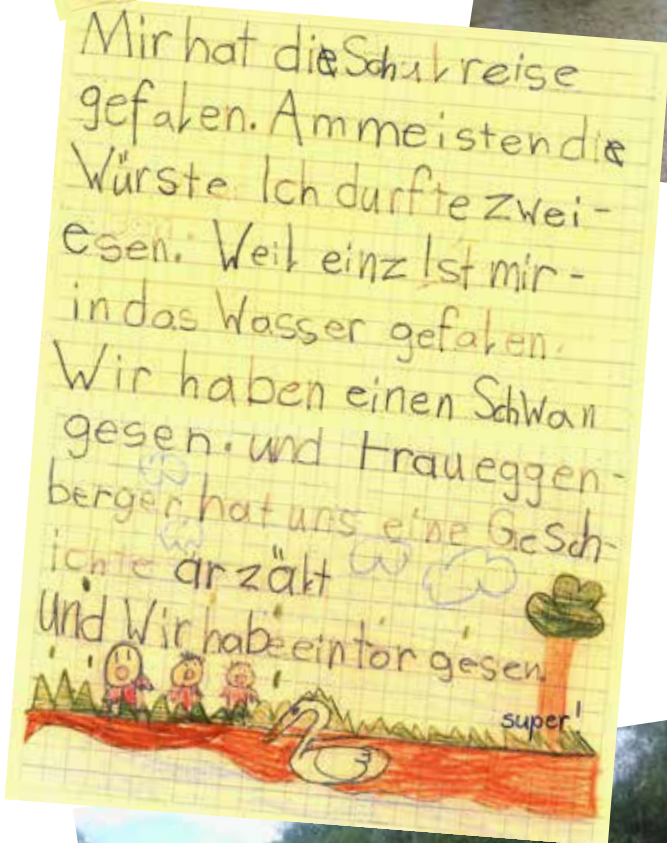 Mir hat die Schulreise
gefalen. Am meisten die
Würste. Ich durfte zwei-
esen. Weil einz Ist mir-
in das Wasser gefalen.
Wir haben einen SchWan
gesen. und fraueggen-
berger hat uns eine GeSch-
ichte ärzält
und Wir habe ein tor gesen.
super!